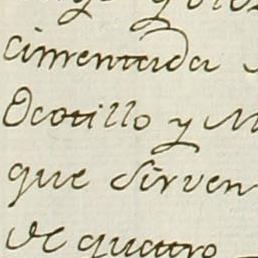 cimentada
Ocotillo y
que sirven
de quatro